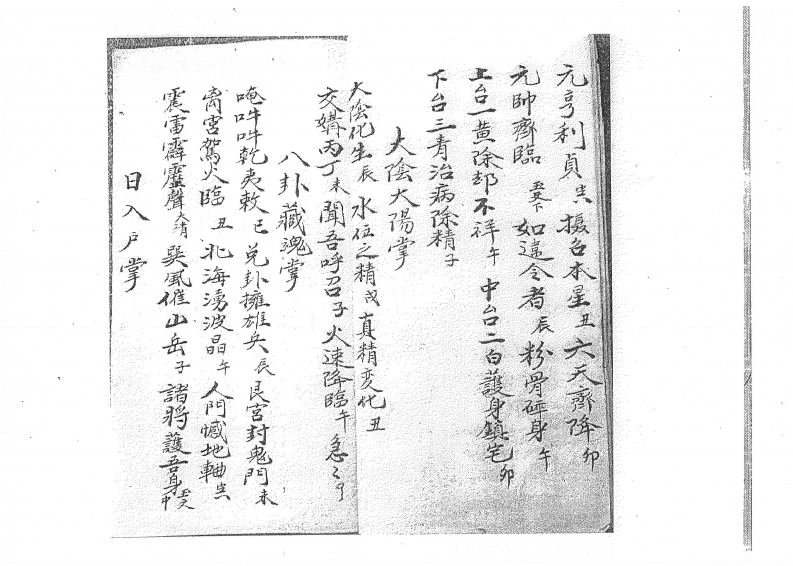 元亨利貞 攝召本星丑 六天齊降卯
元帥齊臨 如違令者辰 粉骨碎身午
上台一黄除却不祥午 中台二白護身鎮宅卯
下台三青治病除精子
大陰大陽掌
大陰化生辰 水位之精戌 真精変化丑
交媾丙丁未 聞吾呼召子 火速降臨午 急〻
八卦藏魂掌
唵吽吽乾夷敕巳 兌卦擁雄兵辰 艮宮封鬼門未
离宮駕火臨丑 北海湧波晶午 人門憾地軸
震雷霹靂聲 巽風催山岳子 諸將護吾身
日入戶掌